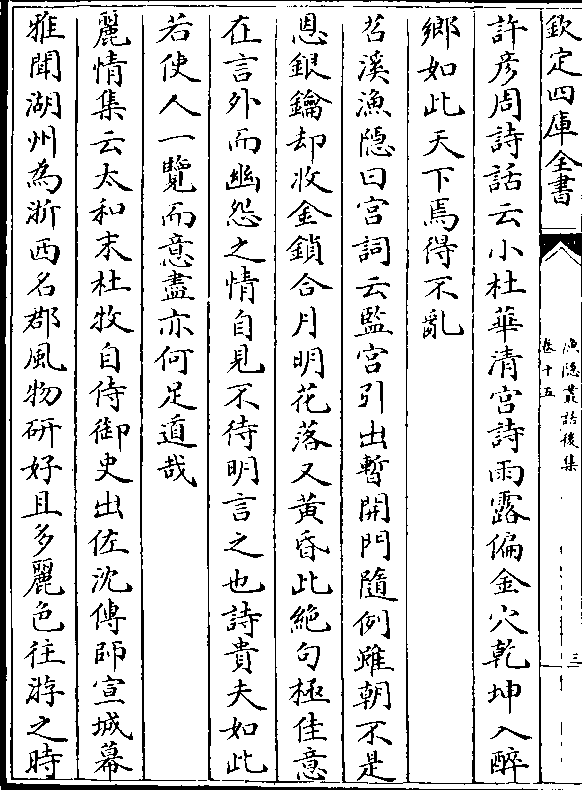 欽定四庫全書
漁隱叢話後集
卷十五
三
許彥周詩話云小杜華清宮詩雨露偏金穴乾坤入醉
鄉如此天下焉得不亂
苕溪漁隱曰宮詞云監宮引出暫開門隨例雖朝不是
恩銀鑰却收金鎖合月明花落又黃昏此絶句極佳意
在言外而幽怨之情自見不待明言之也詩貴夫如此
若使人一覽而意盡亦何足道哉
麗情集云太和末杜牧自侍御史出佐沈傳師宣城幕
雅聞湖州為浙西名郡風物研好且多麗色往游之時